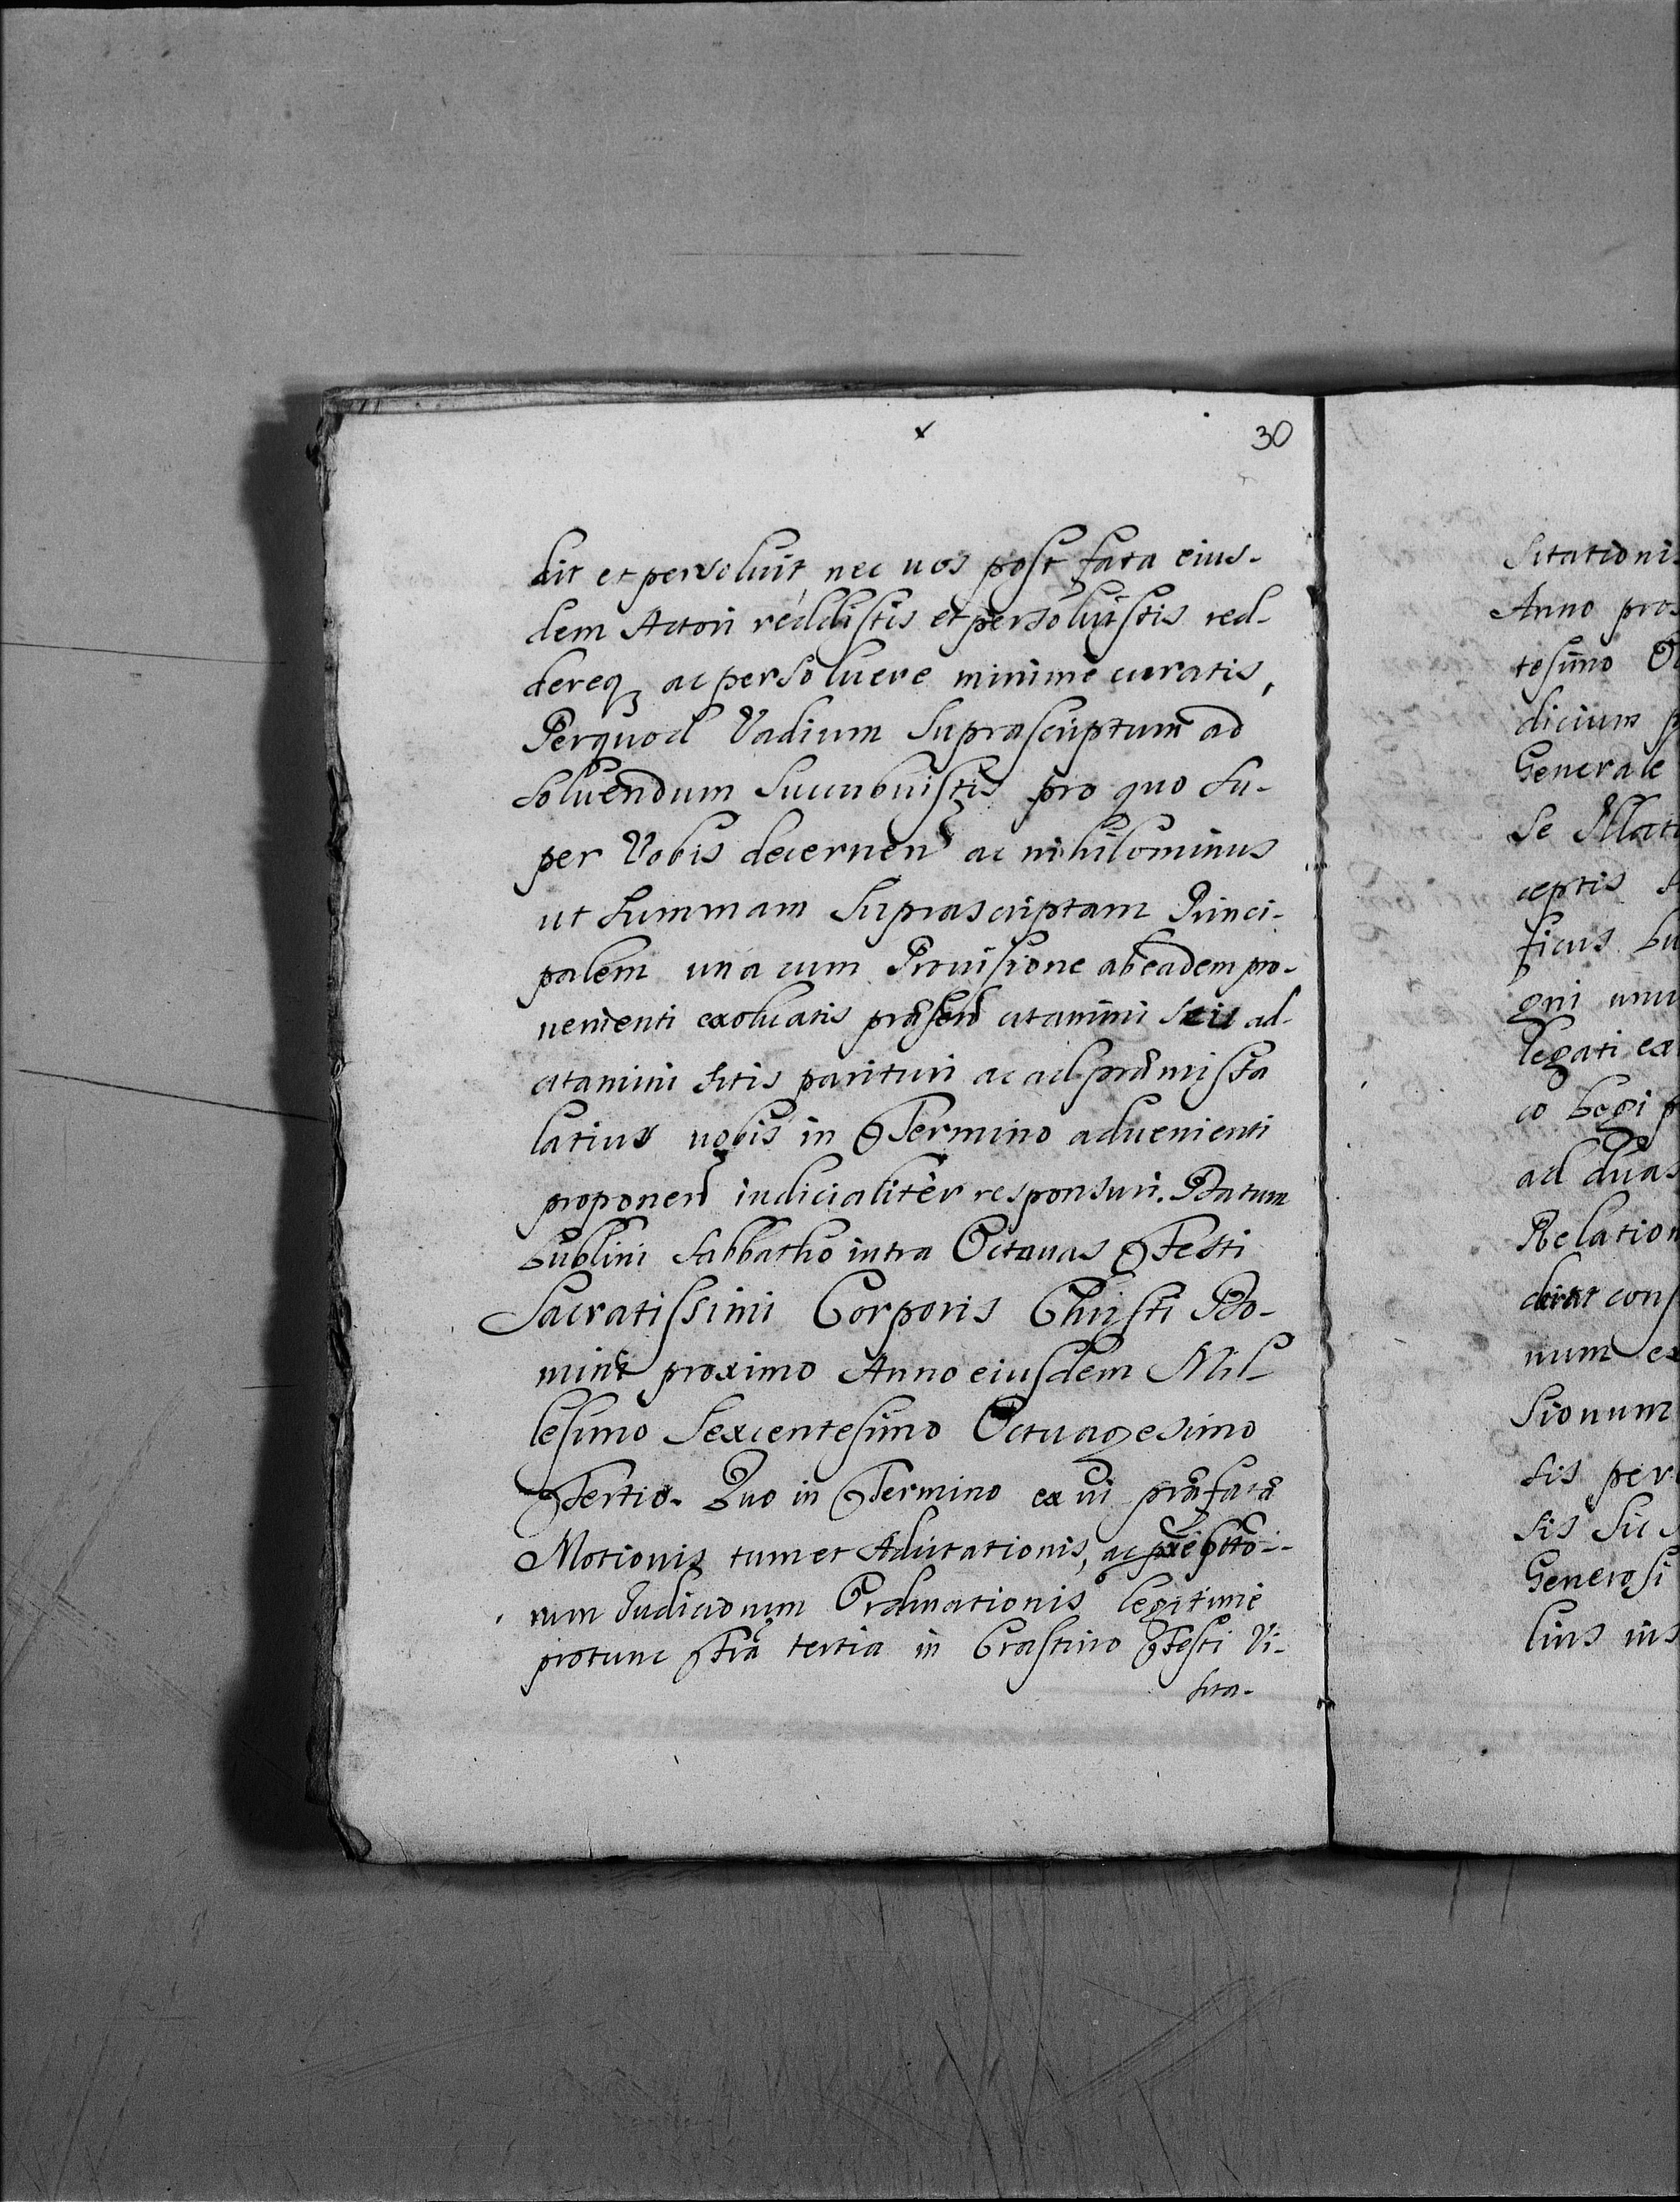 30
dit et persoluit nec uos post fata eius-
dem Actori reddistis et persoluistis red-
dereq ac persoluere minime curatis,
Perquod Vadium suprascriptum ad
soluendum succubuistis pro quo su-
per Vobis decernen ac nihilominus
ut summam suprascriptam Princi-
palem una cum Prouisione ab eadem pro-
uenienti exoluatis præsen citamini ad-
citamini sitis parituri ac ad præmissa
latius uobis in Termino aduenienti
proponen iudicialiter responsuri. Datum
Lublini sabbatho intra Octauas Festi
Sacratissimi Corporis Christi Do-
mini proximo Anno eiusdem Mil-
lesimo Sexcentesimo Octuagesimo
Tertio. Quo in Termino ex ui præfatæ
Motionis tum et Adcitationis, ac
rum Iudiciorum Ordinationis legitime
protunc Fra tertia in Crastino Festi Vi-
sita-
sitationis
Anno pro
tesimo
dicium
Generale
se
ceptis
ficus
gni
legati ex
co Legi
ad duas
Relation
cons
num ex
sionum
sis per
sis sic
Generosi
lius ins